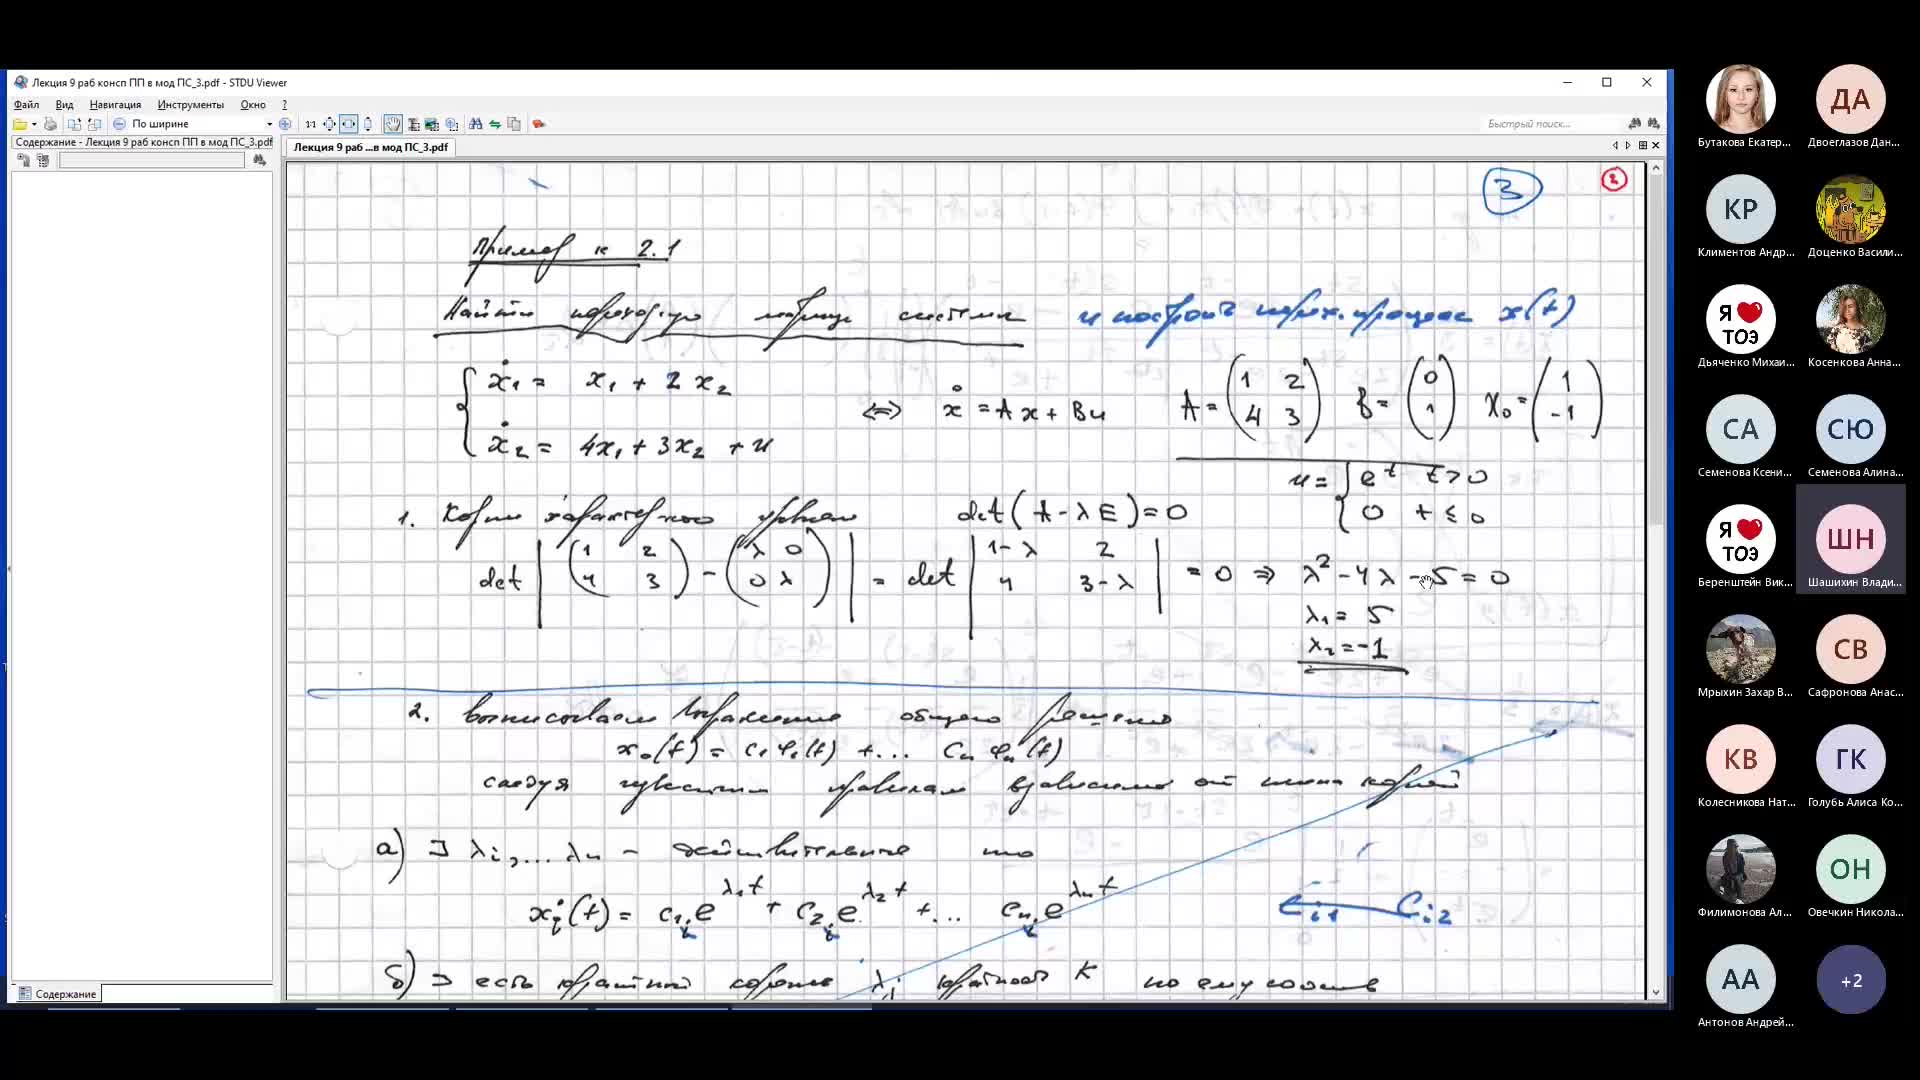 Лекция 9 раб консп ПП в мод ПС_3.pdf - STDU Viewer
Файл Вид Навигация Инструменты Окно ?
По ширине
1:1
Быстрый поиск...
Содержание - Лекция 9 раб консп ПП в мод ПС_3.pdf
Лекция 9 раб ...в мод ПС_3.pdf
3
2
Пример к 2.1
Найти переходную матрицу системы и построить перех. процесс x(t)
ẋ₁ = x₁ + 2 x₂
ẋ₂ = 4x₁ + 3x₂ + u
⇔ ẋ = Ax + Bu
A = (1 2 4 3) B = (0 1) X₀ = (1 -1)
u = { e^t t > 0
0 t ≤ 0
1. Корни характерного det(A - λE) = 0
det |(1 2 4 3) - (λ 0 0 λ)| = det |1-λ 2 4 3-λ| = 0 ⇒ λ² - 4λ - 5 = 0
λ₁ = 5
λ₂ = -1
2. выписываем выражение общего решения
x₀(t) = c₁φ₁(t) + ... cₙφₙ(t)
следуя правилам в зависимо от типа корней
а) ∃ λᵢ, ... λₙ - действительные то
xᵢ(t) = c₁ᵢe^λ₁t + c₂ᵢe^λ₂t + ... cₙᵢe^λₙt
Cᵢ₁ Cᵢ₂
б) ∃ есть кратный корень λᵢ кратност K по ему
Содержание
Бутакова Екатер...
ДА
Двоеглазов Дан...
КР
Климентов Андр...
Доценко Васили...
Я ❤ ТОЭ
Дьяченко Михаи...
Косенкова Анна...
СА
Семенова Ксени...
СЮ
Семенова Алина...
Я ❤ ТОЭ
Беренштейн Вик...
ШН
Шашихин Влади...
Мрыхин Захар В...
СВ
Сафронова Анас...
КВ
Колесникова Нат...
ГК
Голубь Алиса Ко...
Филимонова Ал...
ОН
Овечкин Никола...
АА
Антонов Андрей...
+2